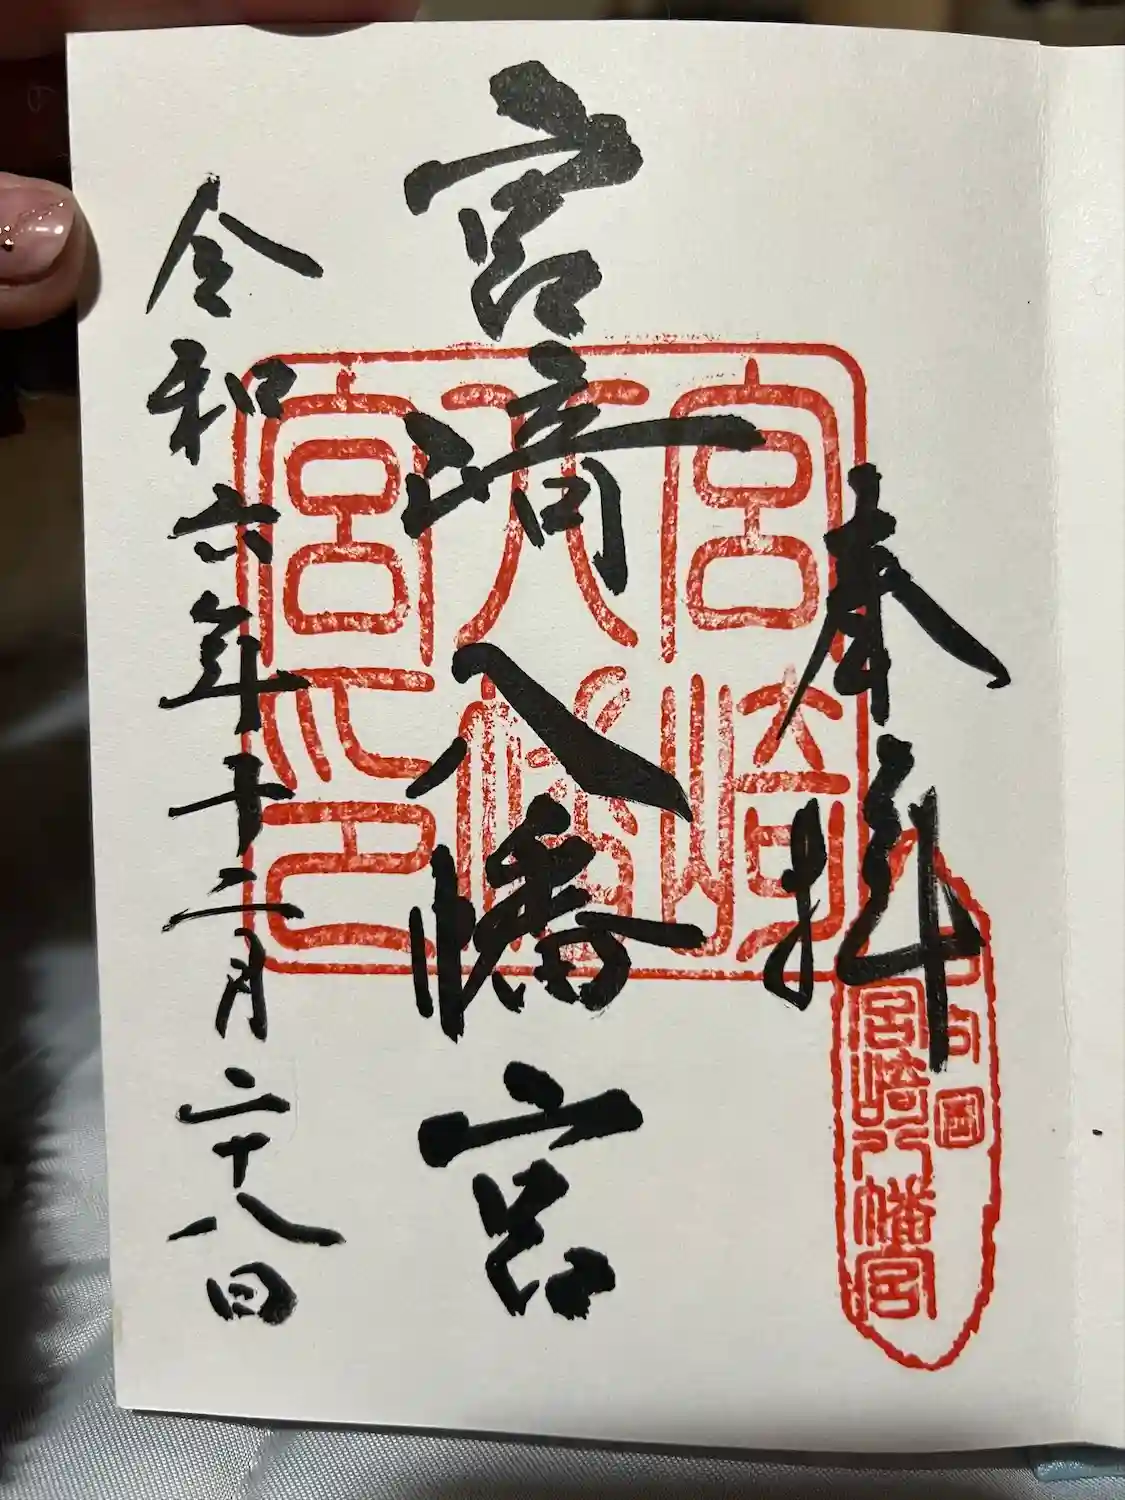 奉拝
宮崎八幡宮
令和六年十二月二十八日
宮崎
八幡
宮印
宮崎八幡宮